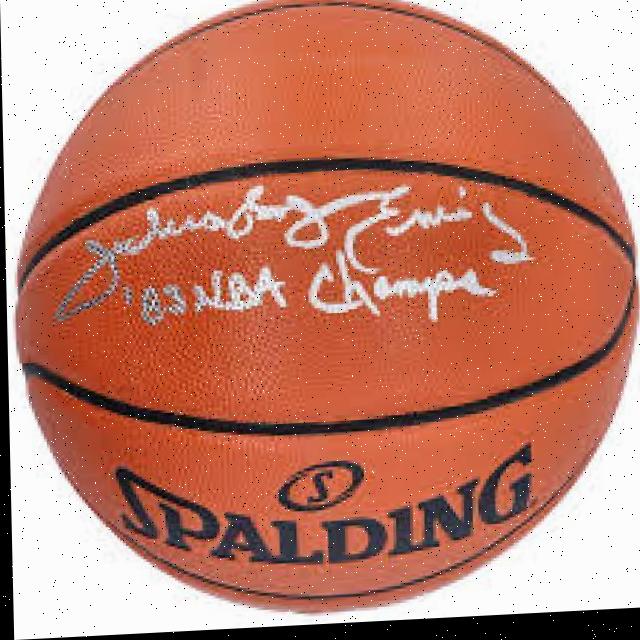 Julius Dr. J Erving
'83 NBA Champs
S
SPALDING